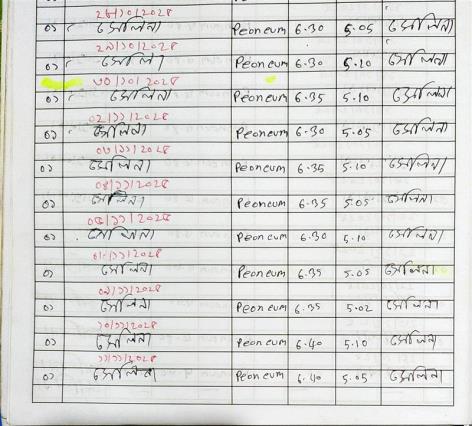 ২৮/১০/২০২৪
০১ সেলিনা Peoneum 6.30 5.05 সেলিনা
২৯/১০/২০২৪
০১ সেলিনা Peoneum 6.30 5.10 সেলিনা
৩০/১০/২০২৪
০১ সেলিনা Peoneum 6.35 5.10 সেলিনা
০২/১১/২০২৪
০১ সেলিনা Peoneum 6.30 5.05 সেলিনা
০৩/১১/২০২৪
০১ সেলিনা Peoneum 6.35 5.10 সেলিনা
০৪/১১/২০২৪
০১ সেলিনা Peoneum 6.35 5.05 সেলিনা
০৫/১১/২০২৪
০১ সেলিনা Peoneum 6.30 5.10 সেলিনা
০১ সেলিনা Peoneum 6.35 5.05 সেলিনা
০৯/১১/২০২৪
০১ সেলিনা Peoneum 6.35 5.02 সেলিনা
১০/১১/২০২৪
০১ সেলিনা Peoneum 6.40 5.10 সেলিনা
১১/১১/২০২৪
০১ সেলিনা Peoneum 6.40 5.05 সেলিনা